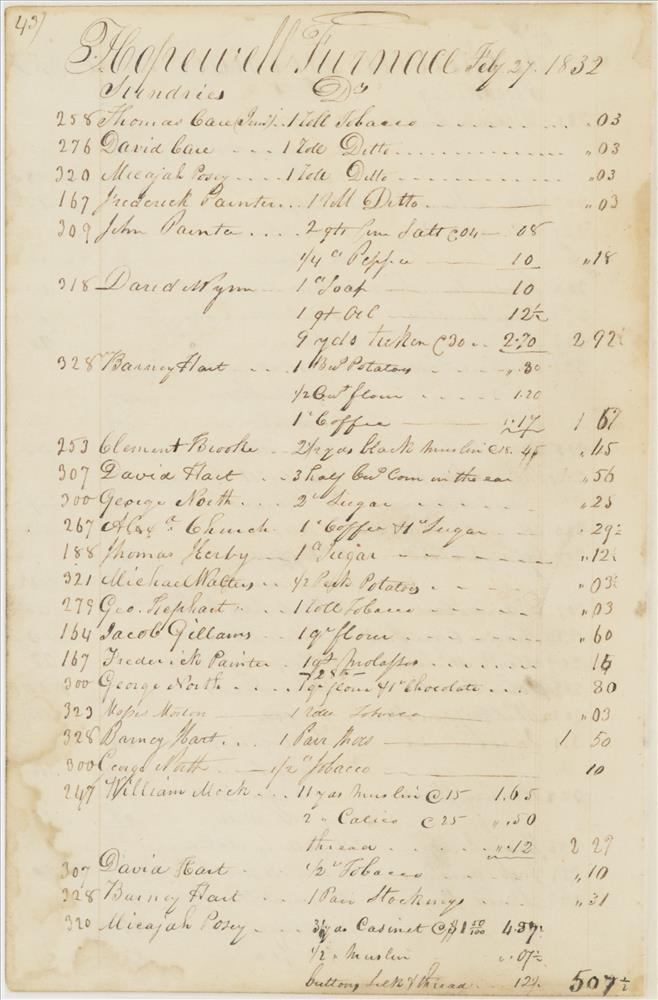 43)
Hopewell Furnace Feby 27. 1832
Sundries Dr
258 Thomas Care Junr 1 Roll Tobacco .03
276 David Care 1 Role Ditto .03
320 Micajah Posey 1 Role Ditto .03
167 Frederick Painter 1 Roll Ditto .03
309 John Painter 2 qts fine Salt @04 08
1/4 " Pepper 10 .18
318 David Wynn 1 " Soap 10
1 qt Oil 12½
9 yds ticken @30 2.70 2 92½
328 Barney Hart 1 Bul Potatoes .30
1/2 Cwt flour 1.20
1 " Coffee .17 1 67
253 Clement Brooke 2½ yds black muslin @18. 45 .45
307 David Hart 3 half Bul Corn in the ear .56
300 George North 2 " Sugar .25
267 Alexr Church 1 " Coffee & 1 " Sugar .29½
188 Thomas Kerby 1 " Sugar .12½
321 Michael Walters 1/2 Peck Potatoes .03½
279 Geo. Kephart 1 Roll Tobacco .03
164 Jacob Gillams 1 qr flour .60
167 Frederick Painter 1 qt Molasses 15
300 George North 1 qr flour & 1 " Chocolate 80
323 Moses Morton 1 Role Tobacco .03
328 Barney Hart 1 Pair Shoes 1 50
300 George North 1/2 " Tobacco 10
247 William Mock 11 yds muslin @15 1.65
2 " Calico @25 .50
thread .12 2 27
307 David Hart 1/2 " Tobacco .10
328 Barney Hart 1 Pair Stockings .31
320 Micajah Posey yds Casinet @ $1 50/100 4.87½
1/2 " Muslin .07½
buttons silk & thread 12½ 507½